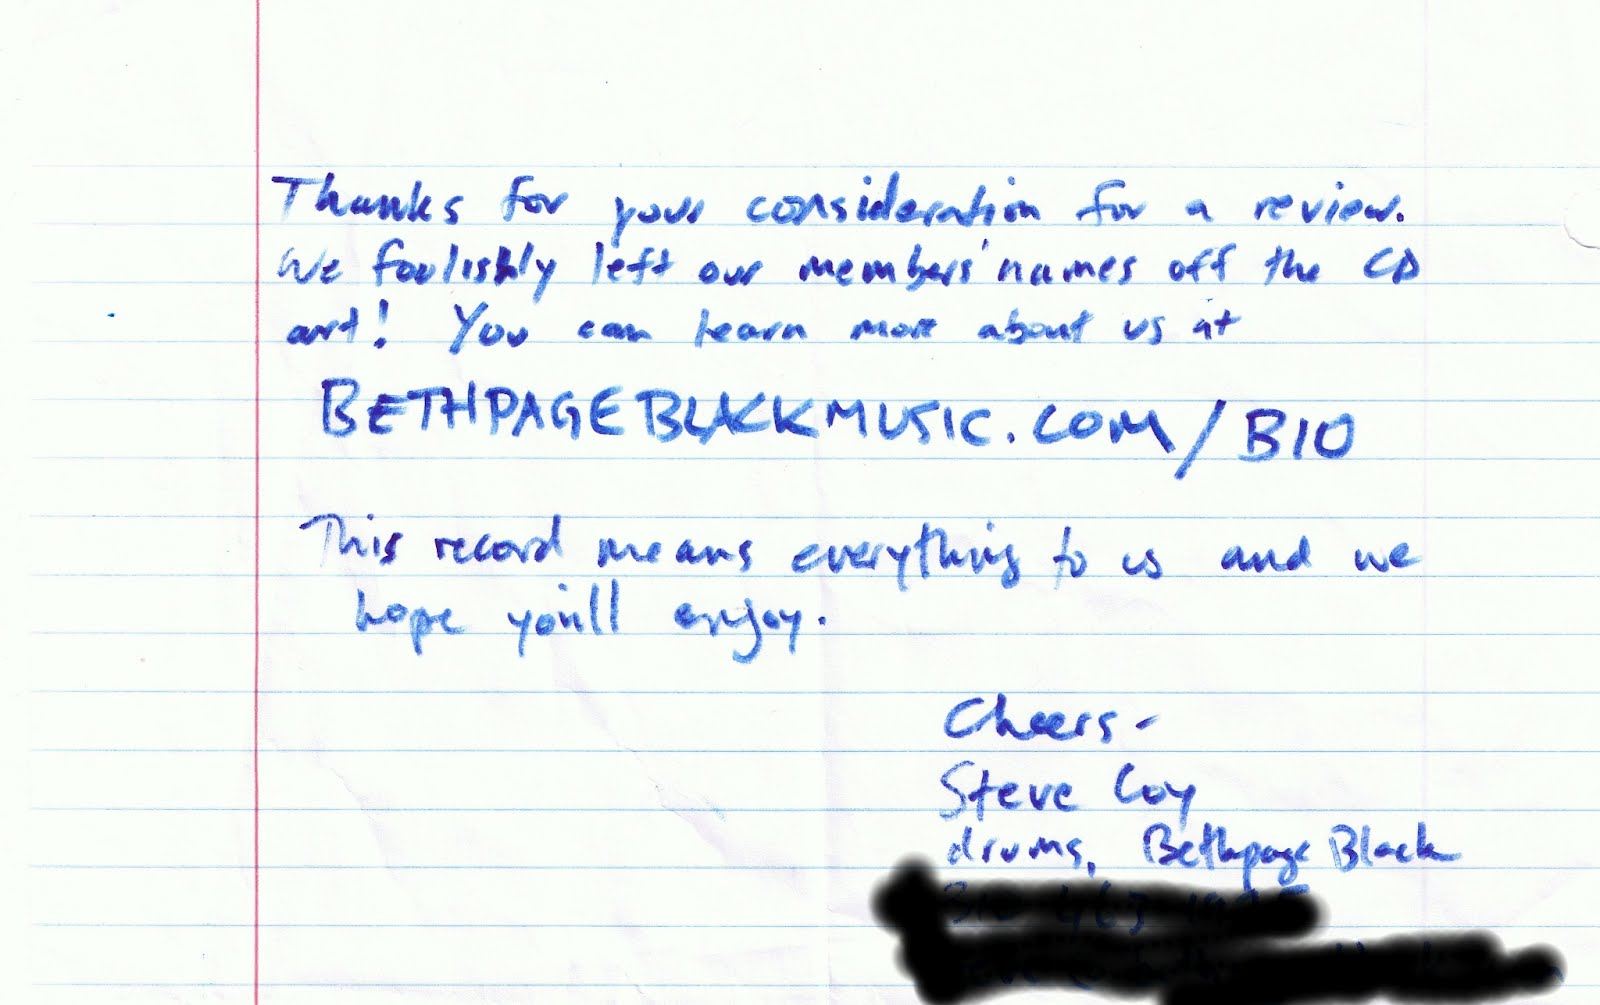 Thanks for your consideration for a review.
We foolishly left our members' names off the CD
art! You can learn more about us at
BETHPAGEBLACKMUSIC.COM/BIO
This record means everything to us and we
hope you'll enjoy.
Cheers-
Steve Coy
drums, Bethpage Black